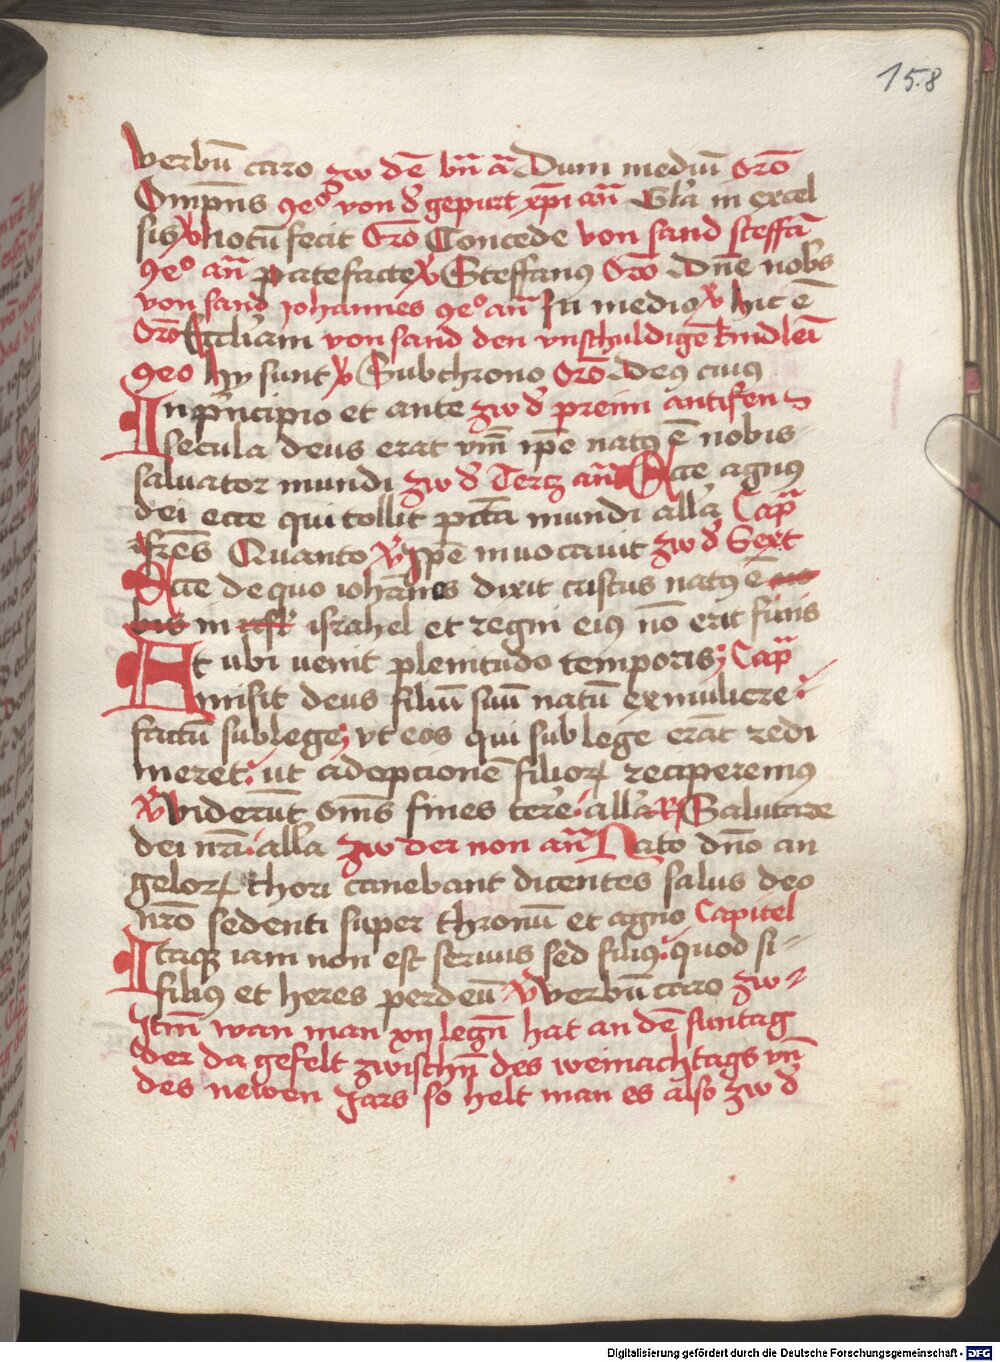 158
verbū caro zw dē bn̄ an̄ Dum mediū Orō
Om̄pn̄s 9eo von d̄ gepurt xp̄i an̄ Gl'a in excel
sis v̄ Notū fecit Orō Concede von sand steffā
9eo an̄ patefacte v̄ Steffanus Orō Dn̄e nob̄s
von sand Johannes 9eo an̄ In medio v̄ hic ē
Orō Eccl'iam von sand den vnschuldigē kindleī
9eo hy sunt v̄ Sub throno Orō Deus cuius
In p̄ncipio et ante zw d̄ preim antifen
secula deus erat vn̄ ip̄e natus ē nobis
saluator mundi zw d̄ Tertz an̄ Ecce agnus
dei ecce qui tollit pctā mundi all'a Capl̄
Frēs Quanto v̄ Ip̄e inuocauit zw d̄ Sext
Ecce de quo iohānes dixit castus natus ē no
bis in isrl' israhel et regni eius nō erit finis
At ubi uenit plenitudo temporis; Capl̄
misit deus filiū suū natū ex muliere
factū sub lege; vt eos qui sub lege erāt redi
meret: ut adopcionē filiorꝝ reciperemus
v̄ viderūt om̄s fines terre: all'a R Salutare
dei nr̄i: all'a zw der non an̄ Nato dn̄o an
gelorꝝ chori canebant dicentes salus deo
nr̄o sedenti super thronū et agno Capitel
Itaqꝫ iam non est seruus sed filius: quod si
filius et heres per deū v̄ verbū caro zw
Itm̄ wan man xij legn̄ hat an dē suntag
der da gefelt zwischn̄ des weinachtags vn̄
des newen Jars so helt man es also zw d̄
Digitalisierung gefördert durch die Deutsche Forschungsgemeinschaft - DFG